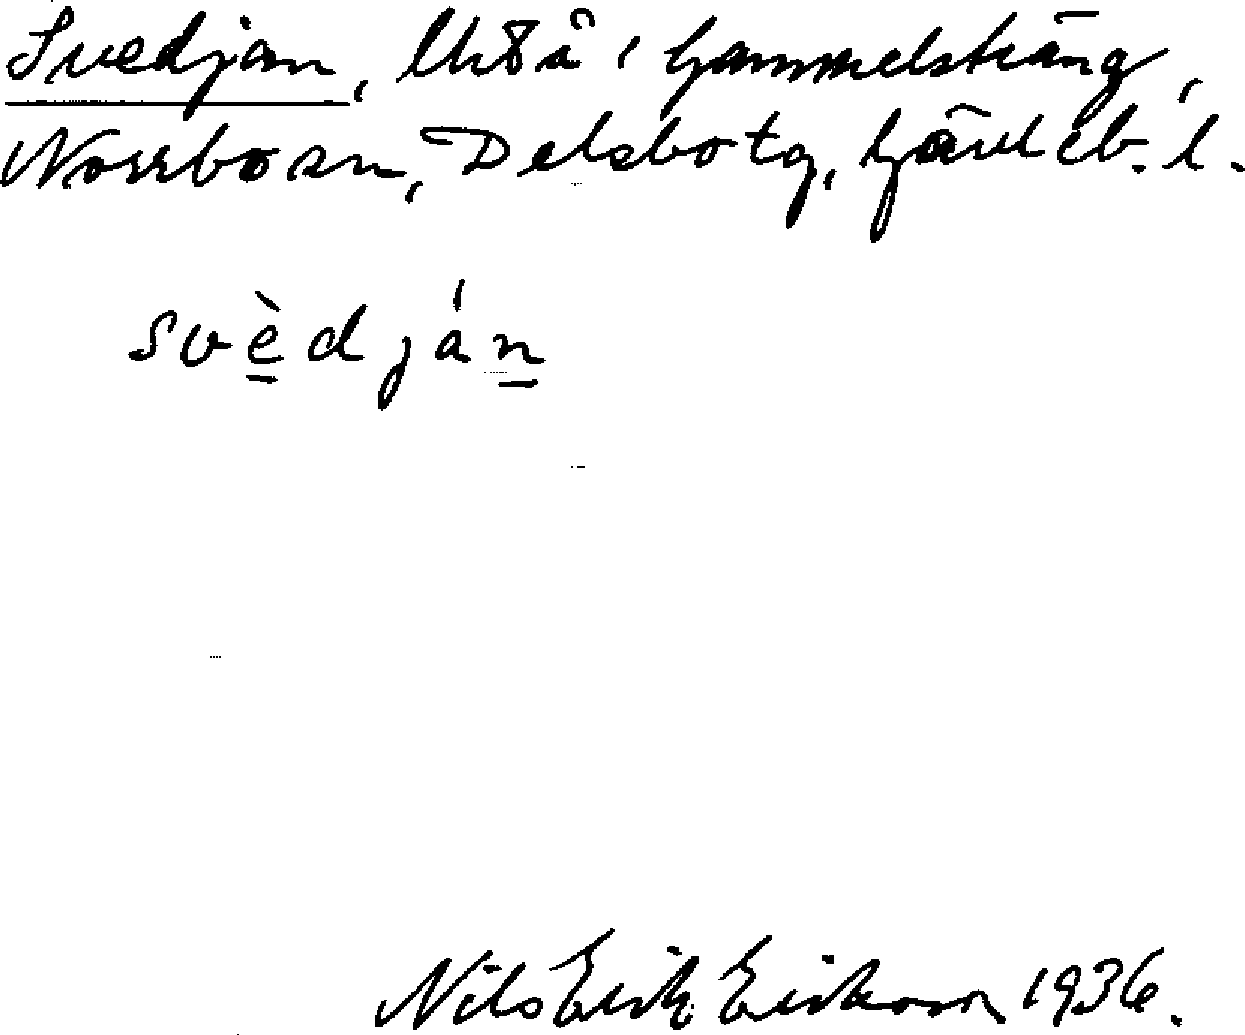 Svedjan, i Gammelsträng,
Norrbo sn, Delsbo tg, Gävleb. l.
svèdján
Nils Erik Erikson 1936.